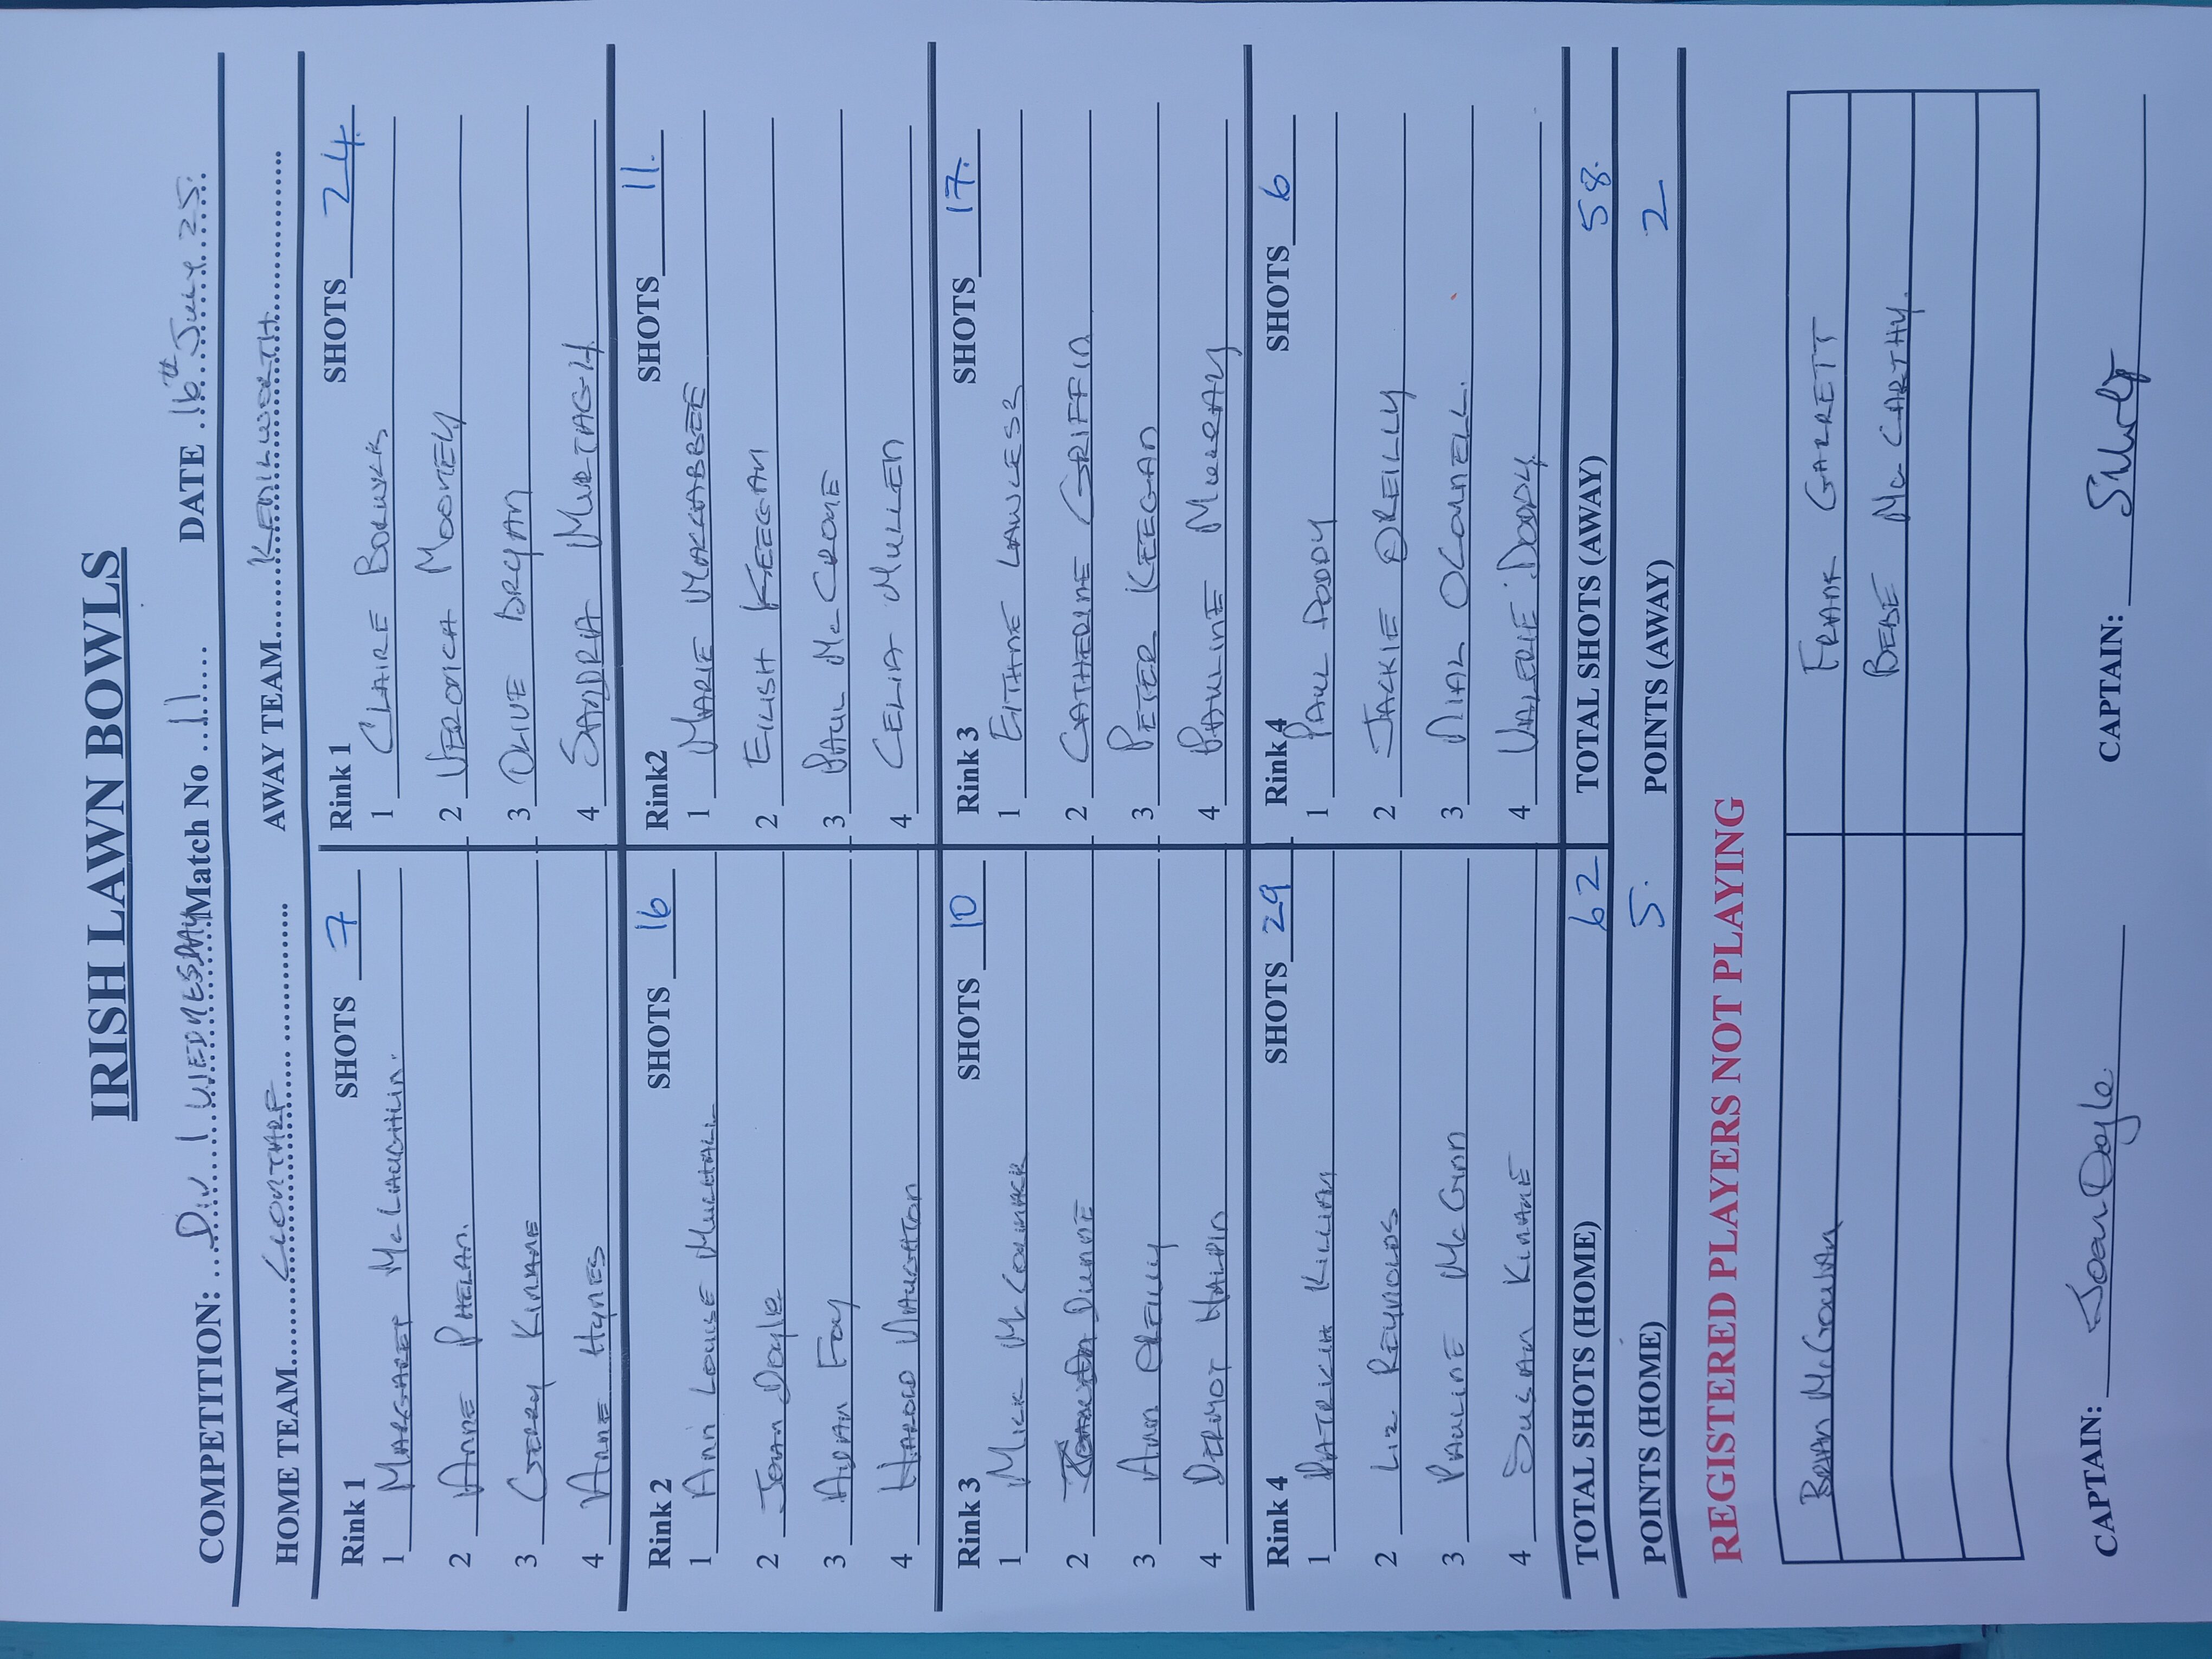 IRISH LAWN BOWLS
COMPETITION: ....Div 1 WEDNESDAY Match No ..11...... DATE .16th July 25.
HOME TEAM........CLONTARF............ AWAY TEAM......KENILWORTH................
Rink 1 SHOTS 7
1 MARGARET McLAUGHLIN.
2 ANNE PHELAN.
3 GERRY KINNANE
4 ANNE HYNES
Rink 1 SHOTS 24.
1 CLAIRE
2 VERONICA MOONEY
3 OLIVE DRYAN
4 SANDRIA MURTAGH
Rink 2 SHOTS 16
1 ANN LOUISE MULHALL
2 JOAN DOYLE
3 AIDAN FOY
4 HAROLD NAUGHTON
Rink2 SHOTS 11.
1 MARIE MACCABBEE
2 EILISH KEEGAN
3 PAUL McCRONE
4 CELIA MULLEN
Rink 3 SHOTS 10
1 MICK McCORMACK
2 DUNNE
3 ANN OREILLY
4 DERMOT HALPIN
Rink 3 SHOTS 17.
1 EITHNE LAWLESS
2 CATHERINE GRIFFIN
3 PETER KEEGAN
4 PAULINE MURRAY
Rink 4 SHOTS 29
1 PATRICIA KILLIAN
2 LIZ REYNOLDS
3 PAULINE McGINN
4 SUSAN KINANE
Rink 4 SHOTS 6
1 PAUL DODDY
2 JACKIE OREILLY
3 NIAL OCONNELL.
4 VALERIE DODDY.
TOTAL SHOTS (HOME) 62 TOTAL SHOTS (AWAY) 58.
POINTS (HOME) 5. POINTS (AWAY) 2
REGISTERED PLAYERS NOT PLAYING
BRIAN McGOWAN FRANK GARRETT
BEDE McCARTHY.
CAPTAIN: Joan Doyle. CAPTAIN: